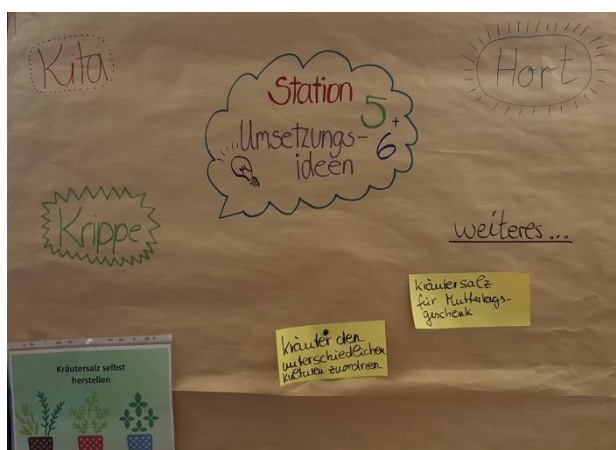 Kita
Hort
Station 5+
Umsetzungs- 6
ideen
Krippe
weiteres...
Kräutersalz
für Muttertags-
geschenk
Kräuter den
unterschiedlichen
Kulturen zuordnen
Kräutersalz selbst
herstellen